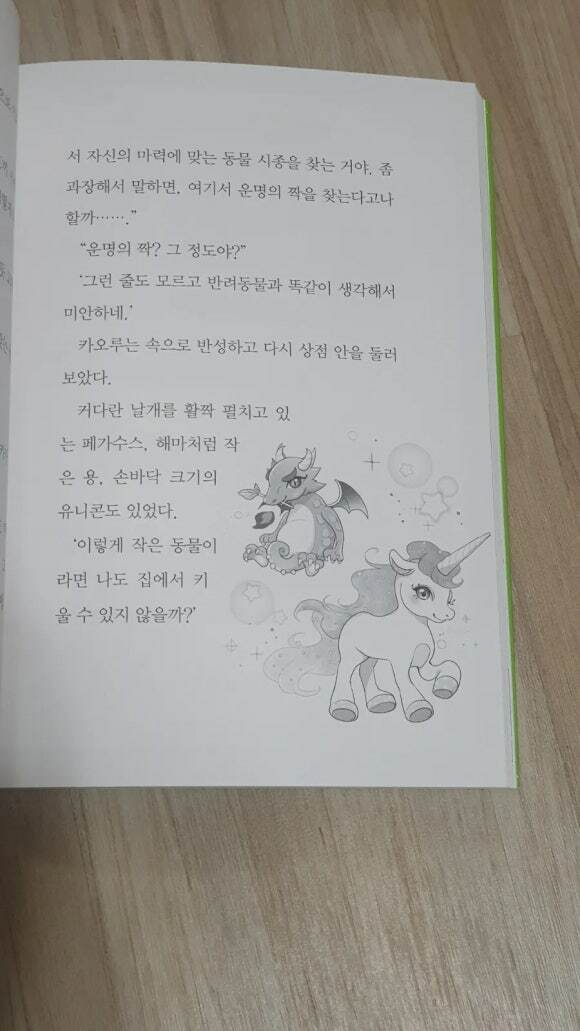 서 자신의 마력에 맞는 동물 시종을 찾는 거야. 좀
과장해서 말하면, 여기서 운명의 짝을 찾는다고나
할까…….”
“운명의 짝? 그 정도야?”
‘그런 줄도 모르고 반려동물과 똑같이 생각해서
미안하네.’
카오루는 속으로 반성하고 다시 상점 안을 둘러
보았다.
커다란 날개를 활짝 펼치고 있
는 페가수스, 해마처럼 작
은 용, 손바닥 크기의
유니콘도 있었다.
‘이렇게 작은 동물이
라면 나도 집에서 키
울 수 있지 않을까?’